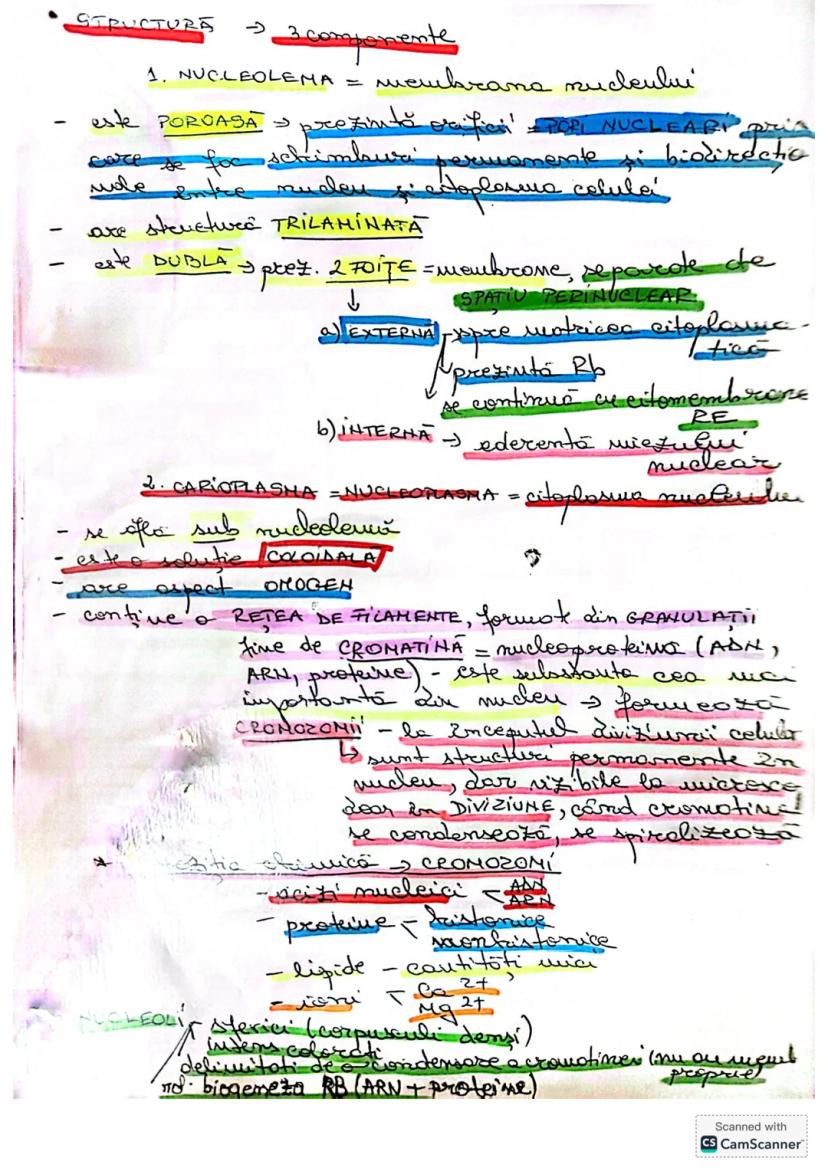 • STRUCTURĂ → 3 componente
1. NUCLEOLEMA = membrana nucleului
- este POROASĂ → prezintă orificii = PORI NUCLEARI prin
care se fac schimburi permanente și bidirecțio
nale între nucleu și citoplasma celulei
- are structură TRILAMINATĂ
- este DUBLĂ → prez. 2 FOIȚE = membrane, separate de
SPAȚIU PERINUCLEAR
↓
a) EXTERNĂ - spre matricea citoplasma-
tică
prezintă Rb
se continuă cu citomembrane
RE
b) INTERNĂ → aderentă miezului
nuclear
2. CARIOPLASMA = NUCLEOPLASMA = citoplasma nucleului
- se află sub nucleolemă
- este o soluție COLOIDALĂ
- are aspect OMOGEN
- conține o REȚEA DE FILAMENTE, formate din GRANULAȚII
fine de CROMATINĂ = nucleoproteină (ADN,
ARN, proteine) - este substanta cea mai
importantă din nucleu → formează
CROMOZOMII - la începutul diviziunii celular
↳ sunt structuri permanente în
nucleu, dar vizibile la microsco
doar în DIVIZIUNE, când cromatina
se condensează, se spiralizează
* chimică → CROMOZOMI
- acizi nucleici < ADN
ARN
- proteine - histonice
nonhistonice
- lipide - cantități mici
- ioni < Ca 2+
Mg 2+
NUCLEOLI - sferici (corpusculi denși)
intens colorați
delimitati de o condensare a cromatinei (nu au memb
proprie)
rol biogeneza RB (ARN + proteine)
Scanned with
CS CamScanner